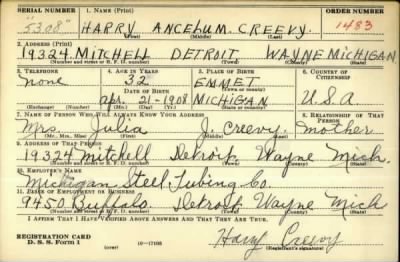 SERIAL NUMBER 1. NAME (Print) ORDER NUMBER
"5308" HARRY ANCELUM. CREEVY. 1483
(First) (Middle) (Last)
2. ADDRESS (Print)
19324 MITCHELL DETROIT WAYNE MICHIGAN
(Number and street or R. F. D. number) (Town) (County) (State)
3. TELEPHONE 4. AGE IN YEARS 5. PLACE OF BIRTH 6. COUNTRY OF CITIZENSHIP
none 32 EMMET
DATE OF BIRTH (Town or county)
apr. 21-1908 MICHIGAN U.S.A
(Exchange) (Number) (Mo.) (Day) (Yr.) (State or country)
7. NAME OF PERSON WHO WILL ALWAYS KNOW YOUR ADDRESS 8. RELATIONSHIP OF THAT PERSON
Mrs. Julia Creevy. mother
(Mr., Mrs., Miss) (First) (Middle) (Last)
9. ADDRESS OF THAT PERSON
19324 Mitchell Detroit Wayne Mich.
(Number and street or R. F. D. number) (Town) (County) (State)
10. EMPLOYER'S NAME
Michigan Steel Tubing Co.
11. PLACE OF EMPLOYMENT OR BUSINESS
9450 Buffalo. Detroit Wayne Mich
(Number and street or R. F. D. number) (Town) (County) (State)
I AFFIRM THAT I HAVE VERIFIED ABOVE ANSWERS AND THAT THEY ARE TRUE.
REGISTRATION CARD
D. S. S. Form 1 (over) 16—17105 Harry Creevy